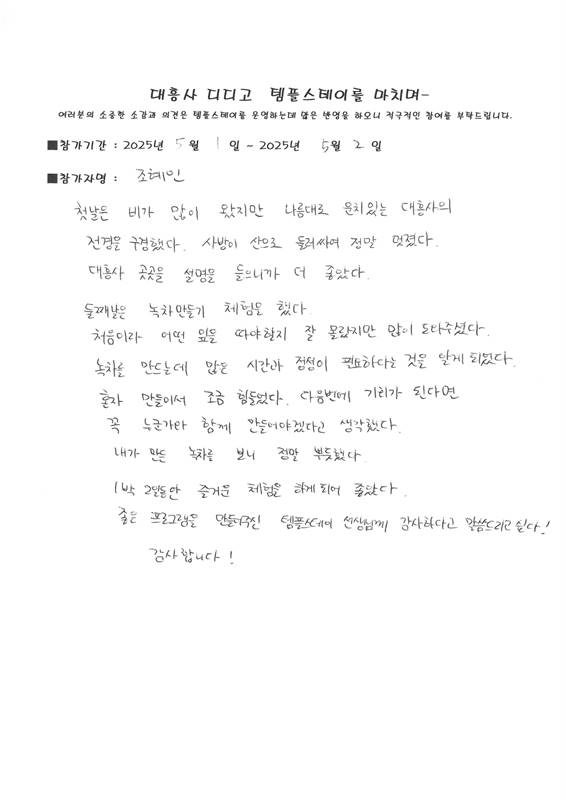 대흥사 디디고 템플스테이를 마치며-
여러분의 소중한 소감과 의견은 템플스테이를 운영하는데 많은 반영을 하오니 적극적인 참여를 부탁드립니다.
■참가기간 : 2025년 5월 1일 ~ 2025년 5월 2일
■참가자명 : 조혜인
첫날은 비가 많이 왔지만 나름대로 운치있는 대흥사의
전경을 구경했다. 사방이 산으로 둘러싸여 정말 멋졌다.
대흥사 곳곳을 설명을 들으니까 더 좋았다.
둘째날은 녹차만들기 체험을 했다.
처음이라 어떤 잎을 따야할지 잘 몰랐지만 많이 도와주셨다.
녹차를 만드는데 많은 시간과 정성이 필요하다는 것을 알게 되었다.
혼자 만들어서 조금 힘들었다. 다음번에 기회가 된다면
꼭 누군가와 함께 만들어야겠다고 생각했다.
내가 만든 녹차를 보니 정말 뿌듯했다.
1박 2일동안 즐거운 체험을 하게되어 좋았다.
좋은 프로그램을 만들어주신 템플스테이 선생님께 감사하다고 말씀드리고 싶다!
감사합니다!